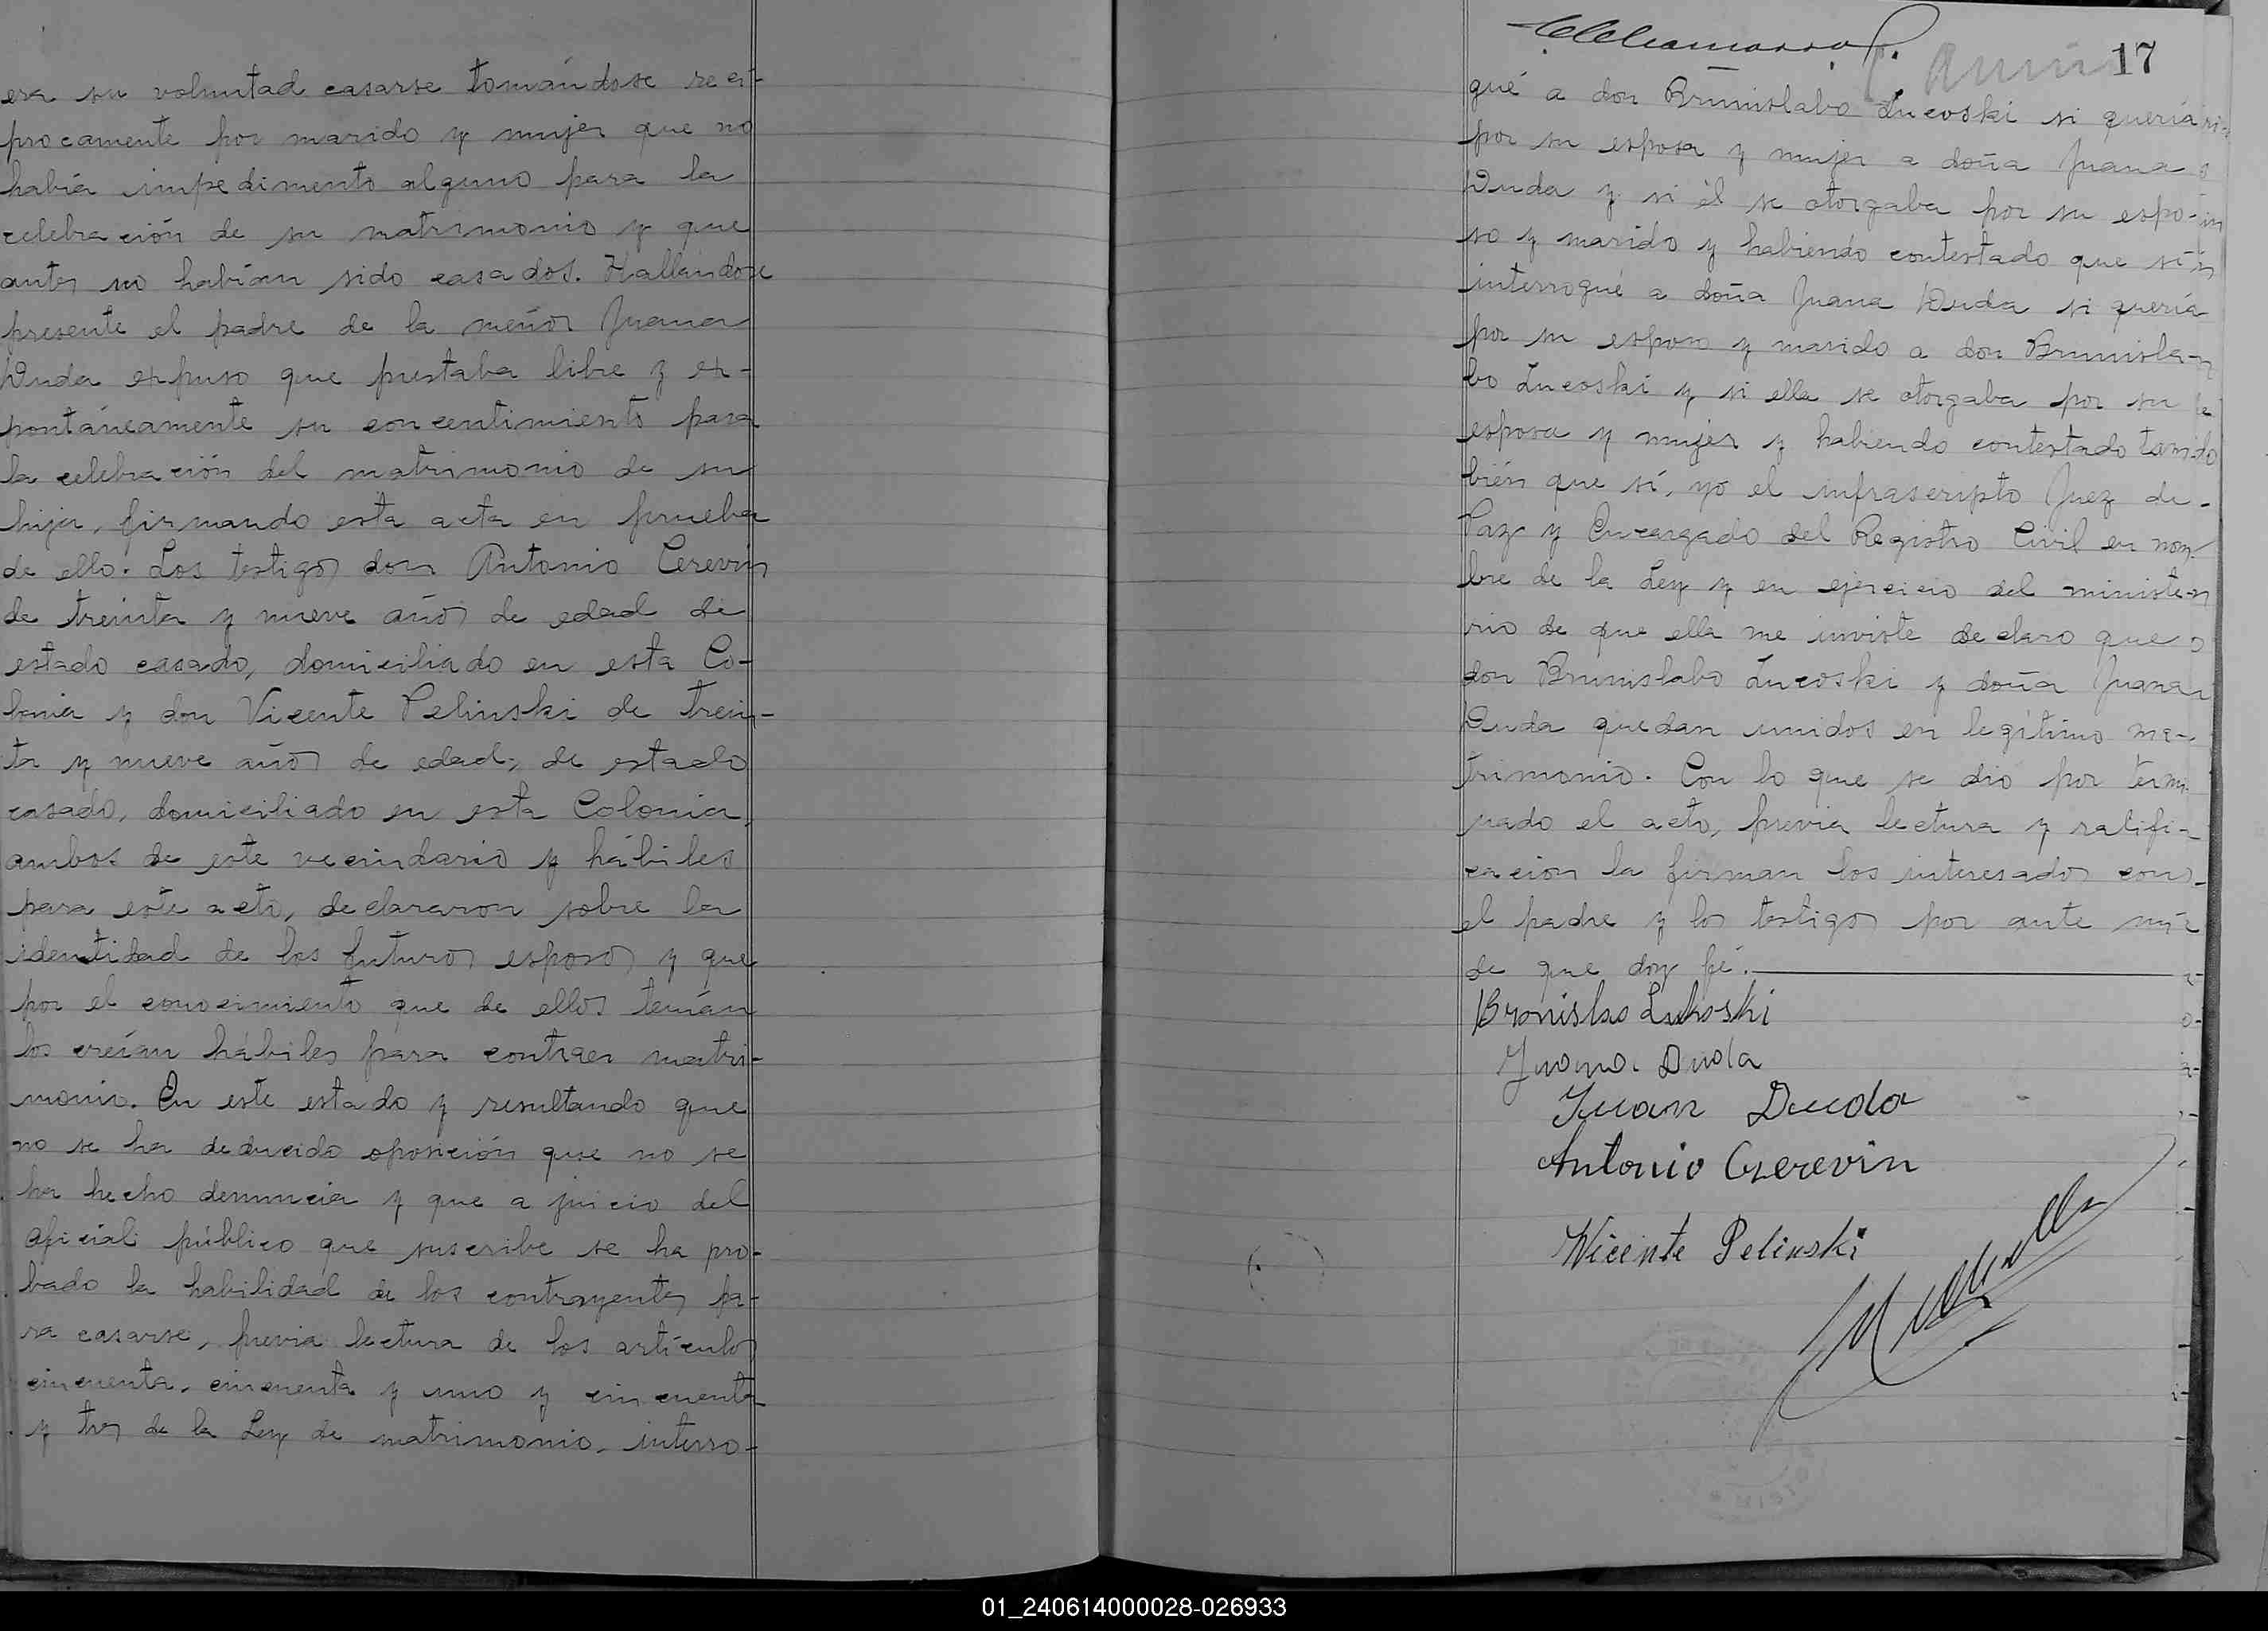 era su voluntad casarse tomándose recí-
procamente por marido y mujer que no
había impedimento alguno para la
celebración de su matrimonio y que
antes no habían sido casados. Hallándose
presente el padre de la menor Juana
Duda expuso que prestaba libre y ex-
pontáneamente su concentimiento para
la celebración del matrimonio de su
hija, firmando esta acta en prueba
de ello. Los testigos don Antonio Cerevin
de treinta y nueve años de edad de
estado casado, domiciliado en esta Co-
lonia y don Vicente Pelinski de trein-
ta y nueve años de edad, de estado
casado, domiciliado en esta Colonia,
ambos de este vecindario y hábiles
para este acto, declararon sobre la
identidad de los futuros esposos y que
por el conocimiento que de ellos tenían
los creían hábiles para contraer matri-
monio. En este estado y resultando que
no se ha deducido oposición que no se
ha hecho denuncia y que a juicio del
oficial público que suscribe se ha pro-
bado la habilidad de los contrayentes pa-
ra casarse, previa lectura de los artículos
cincuenta, cincuenta y uno y cincuenta
y tres de la Ley de matrimonio, interro-
17
gué a don Brunislabo Lucoski si quería
por su esposa y mujer a doña Juana
Duda y si él se otorgaba por su espo-
so y marido y habiendo contestado que sí
interrogué a doña Juana Duda si quería
por su esposo y marido a don Brunisla-
bo Lucoski y si ella se otorgaba por su
esposa y mujer y habiendo contestado tam
bién que sí, yo el infrascripto Juez de
Paz y Encargado del Registro Civil en nom
bre de la Ley y en ejercicio del ministe-
rio de que ella me inviste declaro que
don Brunislabo Lucoski y doña Juana
Duda quedan unidos en legítimo ma-
trimonio. Con lo que se dió por termi
nado el acto, previa lectura y ratifi-
cación la firman los interesados con
el padre y los testigos por ante mí
de que doy fé.
Bronislao Lukoski
Juana Duda
Juan Duda
Antonio Czerevin
Vicente Pelinski
01_240614000028-026933